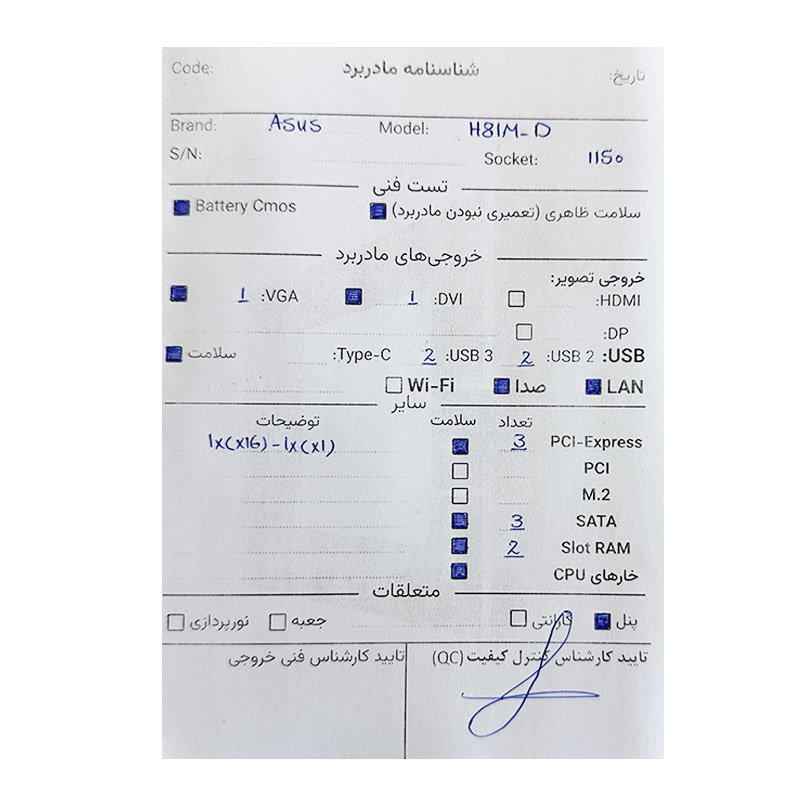 شناسنامه مادربرد
تاریخ:
Code:
Brand: ASUS Model: H81M-D
S/N: Socket: 1150
تست فنی
سلامت ظاهری (تعمیری نبودن مادربرد) Battery Cmos
خروجی‌های مادربرد
خروجی تصویر:
HDMI: DVI: 1 VGA: 1
DP:
USB: USB 2: 2 USB 3: 2 Type-C: سلامت
LAN صدا Wi-Fi
سایر
تعداد سلامت توضیحات
PCI-Express 3 1x(x16)-1x(x1)
PCI
M.2
SATA 3
Slot RAM 2
خارهای CPU
متعلقات
پنل گارانتی جعبه نورپردازی
تایید کارشناس کنترل کیفیت (QC) تایید کارشناس فنی خروجی